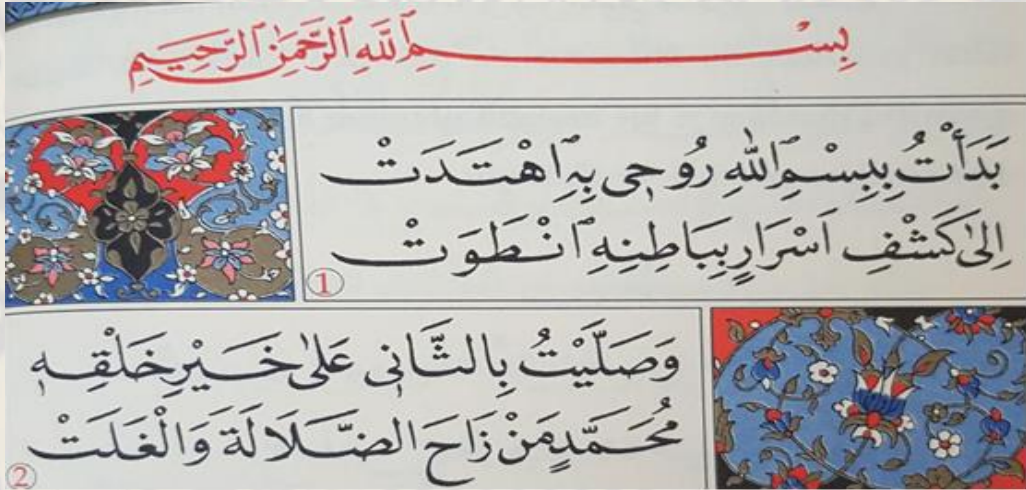 بِسْمِ ٱللَّهِ ٱلرَّحْمَٰنِ ٱلرَّحِيمِ
بَدَأْتُ بِبِسْمِ ٱللّٰهِ رُوحِى بِهِ ٱهْتَدَتْ
اِلٰى كَشْفِ اَسْرَارٍ بِبَاطِنِهِ ٱنْطَوَتْ
1
وَصَلَّيْتُ بِالثَّانِى عَلٰى خَيْرِ خَلْقِهِ
مُحَمَّدٍ مَنْ زَاحَ الضَّلَالَةَ وَالْغَلَتْ
2